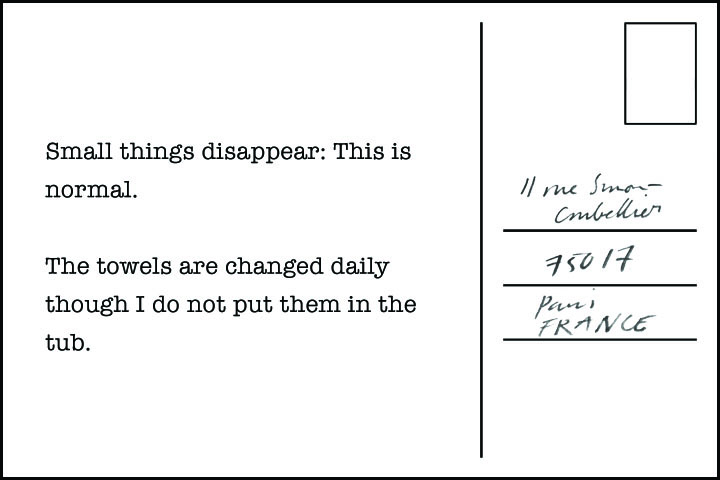 Small things disappear: This is
normal.
The towels are changed daily
though I do not put them in the
tub.
11 rue Simon-
75017
Paris
FRANCE